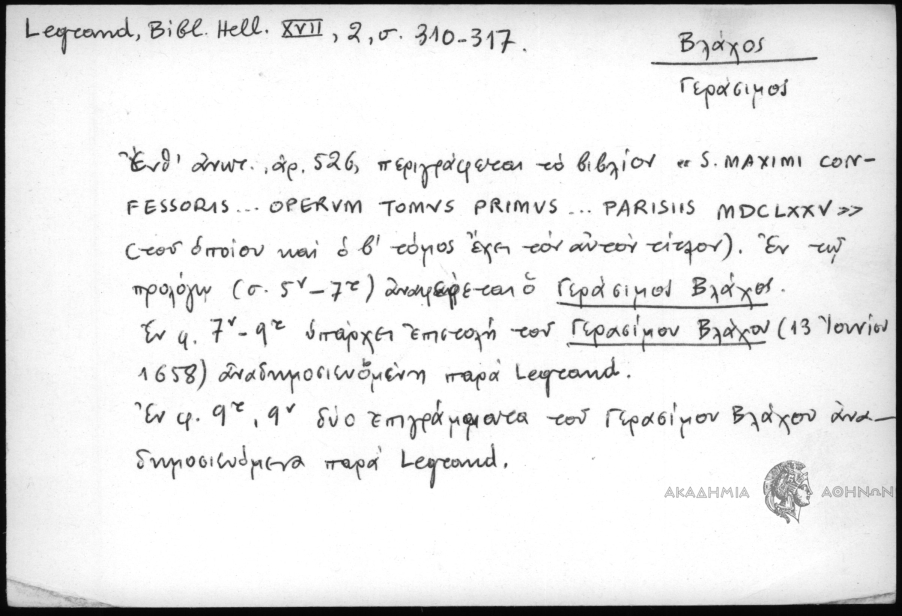 Legrand, Bibl. Hell. XVII, 2, σ. 310-317.
Βλάχος
Γεράσιμος
Ἔνθ' ἀνωτ., ἀρ. 526, περιγράφεται τὸ βιβλίον « S. MAXIMI CON-
FESSORIS... OPERVM TOMVS PRIMVS ... PARISIIS MDCLXXV »
(τοῦ ὁποίου καὶ ὁ β' τόμος ἔχει τὸν αὐτὸν τίτλον). Ἐν τῷ
προλόγῳ (σ. 5ᵛ – 7ʳ) ἀναφέρεται ὁ Γεράσιμος Βλάχος.
Ἐν φ. 7ᵛ - 9ʳ ὑπάρχει ἐπιστολὴ τοῦ Γερασίμου Βλάχου (13 Ἰουνίου
1658) ἀναδημοσιευομένη παρὰ Legrand.
Ἐν φ. 9ʳ, 9ᵛ δύο ἐπιγράμματα τοῦ Γερασίμου Βλάχου ἀνα-
δημοσιευόμενα παρὰ Legrand.
ΑΚΑΔΗΜΙΑ ΑΘΗΝΩΝ